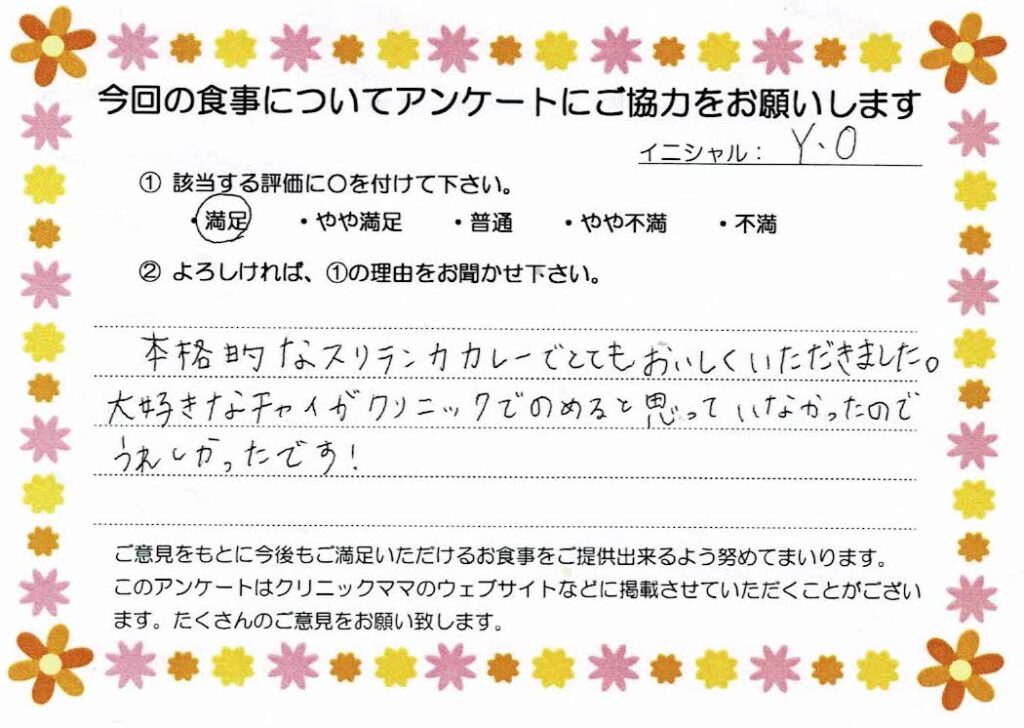 今回の食事についてアンケートにご協力をお願いします
イニシャル： Y.O
① 該当する評価に〇を付けて下さい。
・満足 ・やや満足 ・普通 ・やや不満 ・不満
② よろしければ、①の理由をお聞かせ下さい。
本格的なスリランカカレーでとてもおいしくいただきました。
大好きなチャイがクリニックでのめると思っていなかったので
うれしかったです！
ご意見をもとに今後もご満足いただけるお食事をご提供出来るよう努めてまいります。
このアンケートはクリニックママのウェブサイトなどに掲載させていただくことがござい
ます。たくさんのご意見をお願い致します。